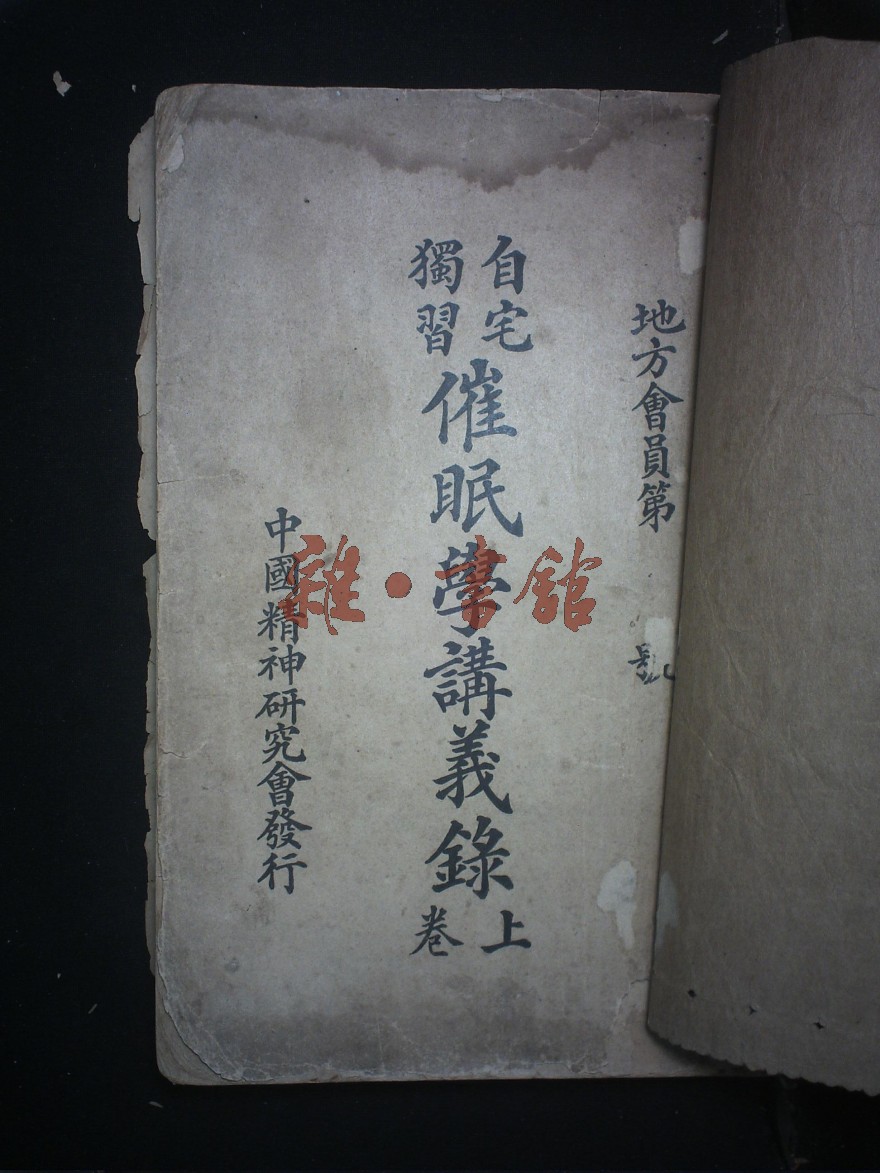 地方會員第 號
自宅獨習 催眠學講義錄 上卷
中國精神研究會發行
雜·書館